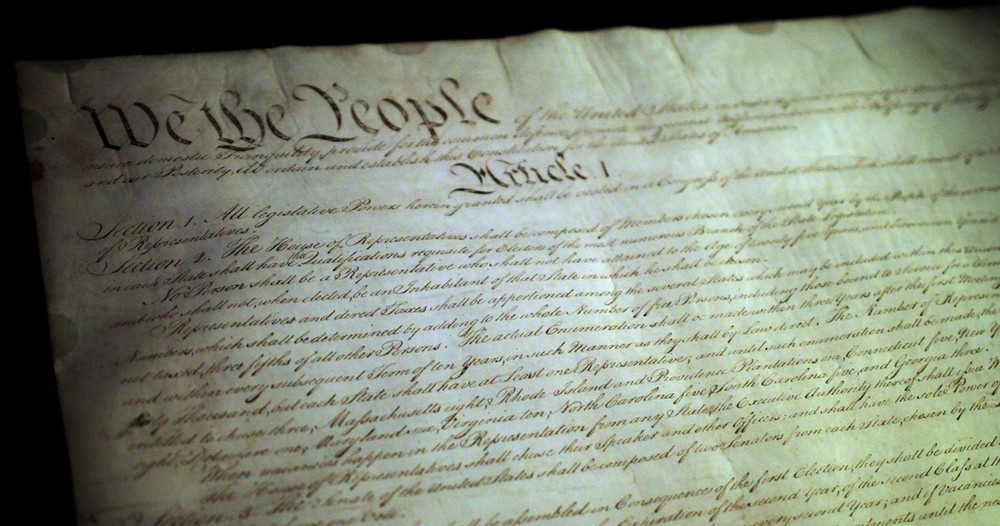 We the People of the United States,
insure domestic Tranquility, provide for the common defence,
and our Posterity, do ordain and establish this Constitution for the United States of America.
Article I
Section 1. All legislative Powers herein granted shall be vested in a Congress of the United
of Representatives.
Section 2. The House of Representatives shall be composed of Members chosen every second Year by the People of the
in each State shall have the Qualifications requisite for Electors of the most numerous Branch of the State Legislature.
No Person shall be a Representative who shall not have attained to the Age of twenty five Years, and
and who shall not, when elected, be an Inhabitant of that State in which he shall be chosen.
Representatives and direct Taxes shall be apportioned among the several States which may be included within this
Numbers, which shall be determined by adding to the whole Number of free Persons, including those bound to Service for a
not taxed, three fifths of all other Persons. The actual Enumeration shall be made within three Years after the first Meeting
and within every subsequent Term of ten Years, in such Manner as they shall by Law direct. The Number of
thirty Thousand, but each State shall have at Least one Representative; and until such enumeration shall be made, the
entitled to chuse three, Massachusetts eight, Rhode Island and Providence Plantations one, Connecticut five, New
eight, Delaware one, Maryland six, Virginia ten, North Carolina five, South Carolina five, and Georgia three.
When vacancies happen in the Representation from any State, the Executive Authority thereof shall issue
The House of Representatives shall chuse their Speaker and other Officers; and shall have the sole Power of
Section. 3. The Senate of the United States shall be composed of two Senators from each State, chosen by the
one Vote.
shall be assembled in Consequence of the first Election, they shall be divided
Expiration of the second Year, of the second Class at the
second Year; and if Vacancies
until the